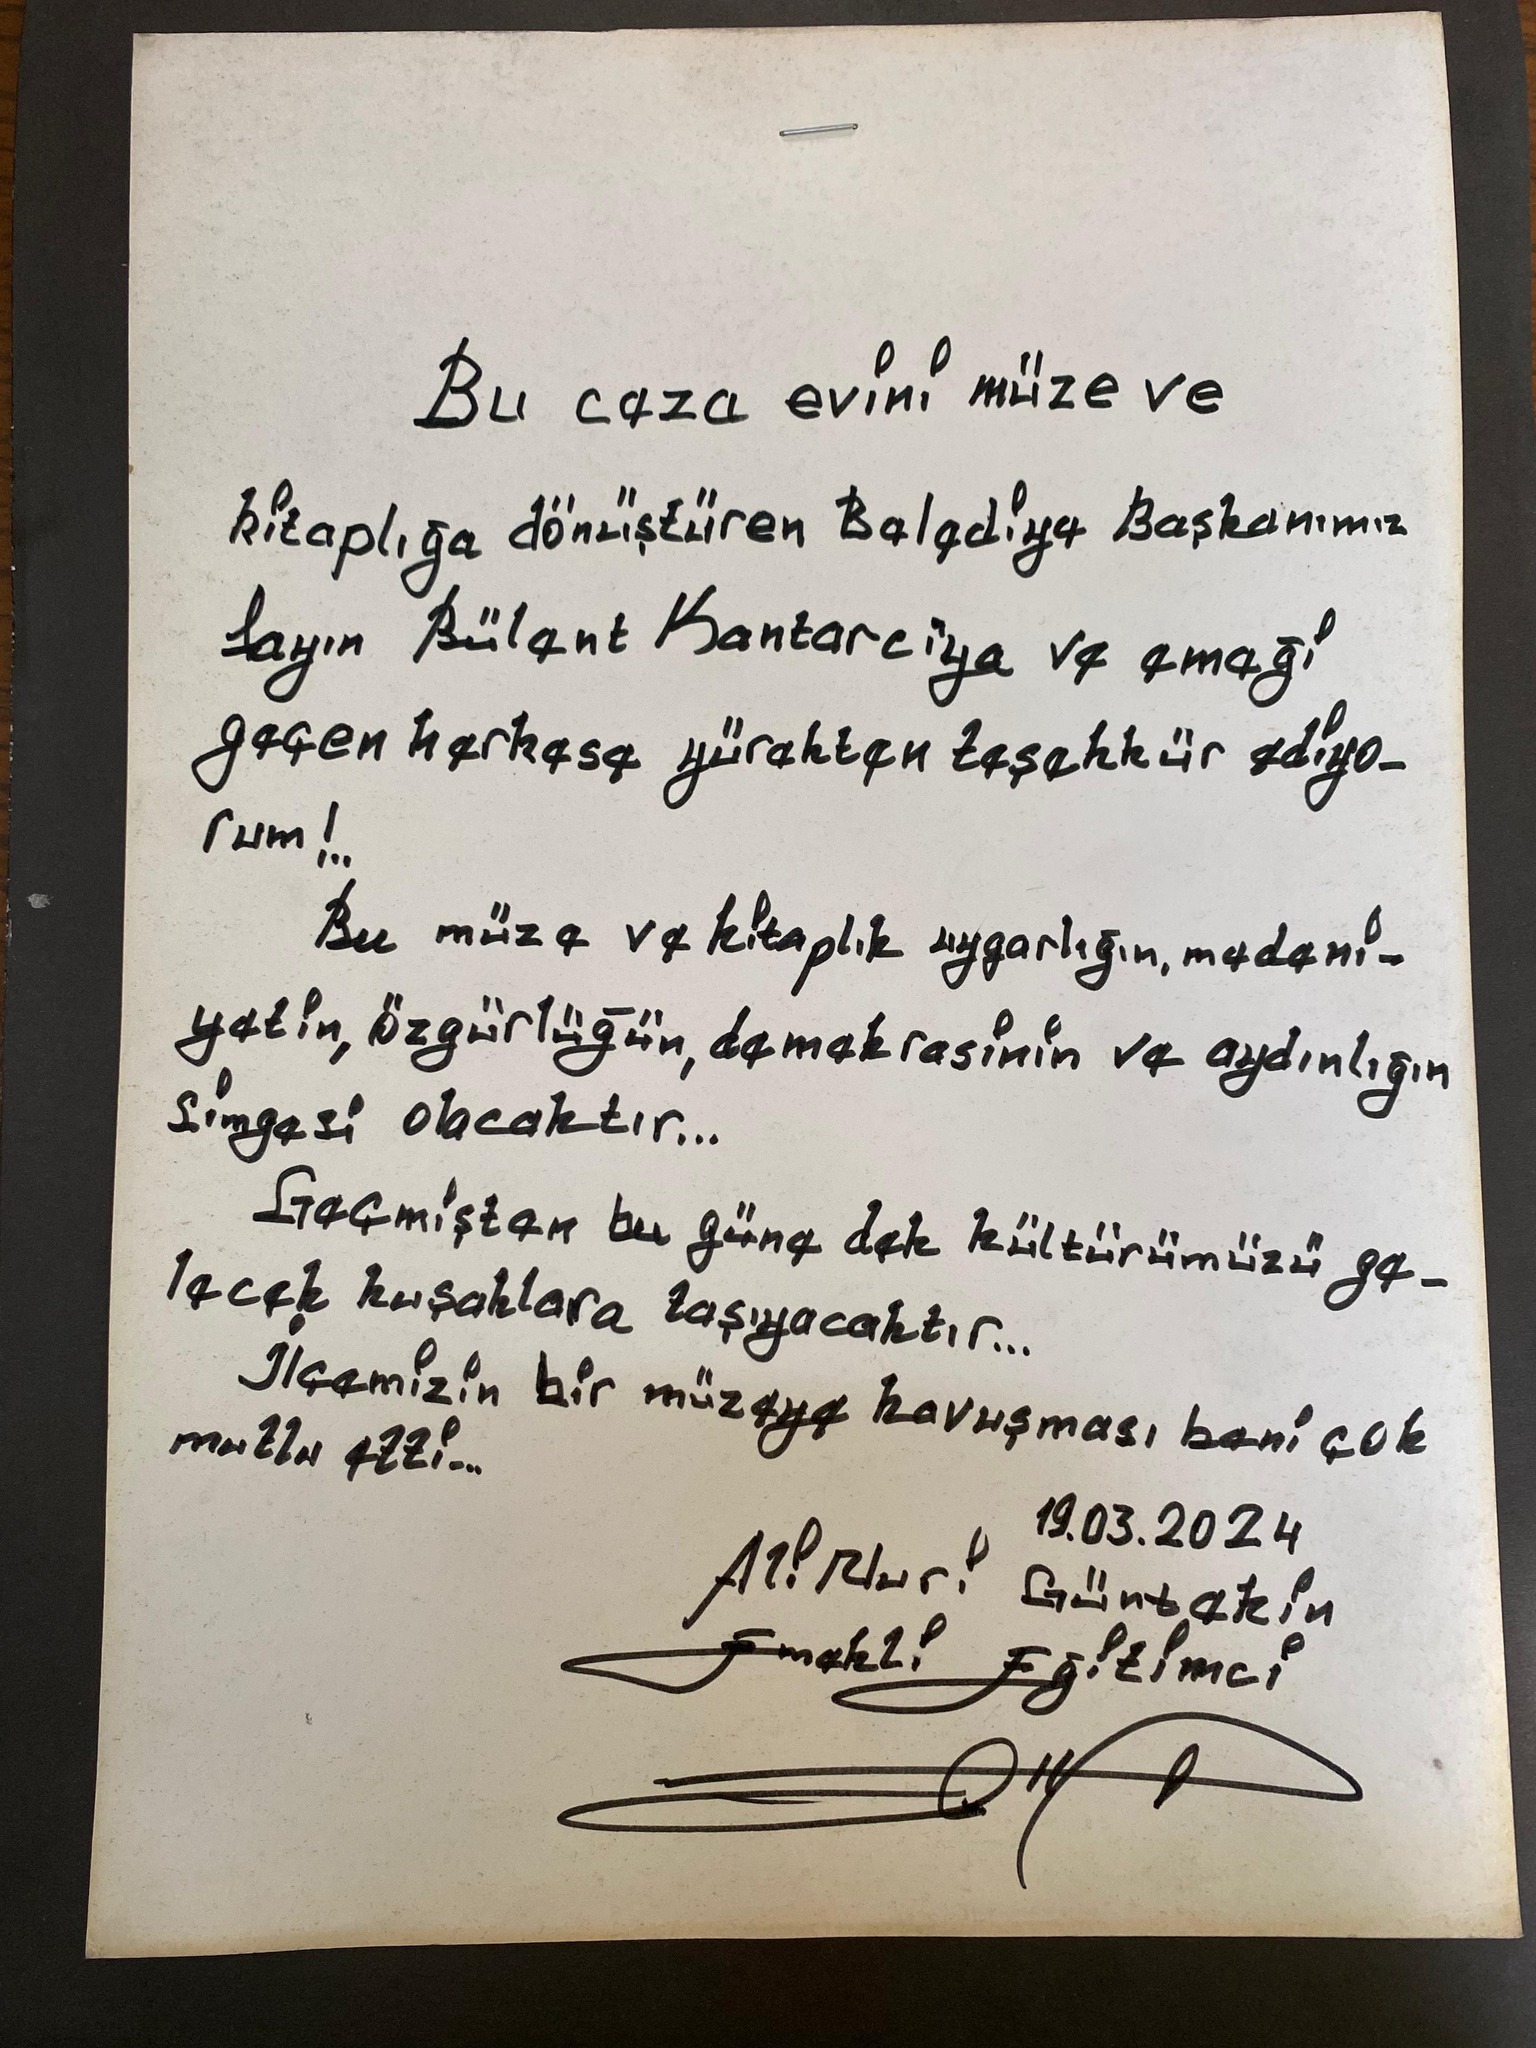 Bu ceza evini müze ve
kitaplığa dönüştüren Belediye Başkanımız
Sayın Bülent Kantarciya ve emeği
geçen herkese yürekten teşekkür ediyo-
rum!..
Bu müze ve kitaplık uygarlığın, medeni-
yetin, özgürlüğün, demokrasinin ve aydınlığın
simgesi olacaktır...
Geçmişten bu güne dek kültürümüzü ge-
lecek kuşaklara taşıyacaktır...
İlçemizin bir müzeye kavuşması beni çok
mutlu etti...
19.03.2024
Ali Nuri Güntekin
Emekli Eğitimci